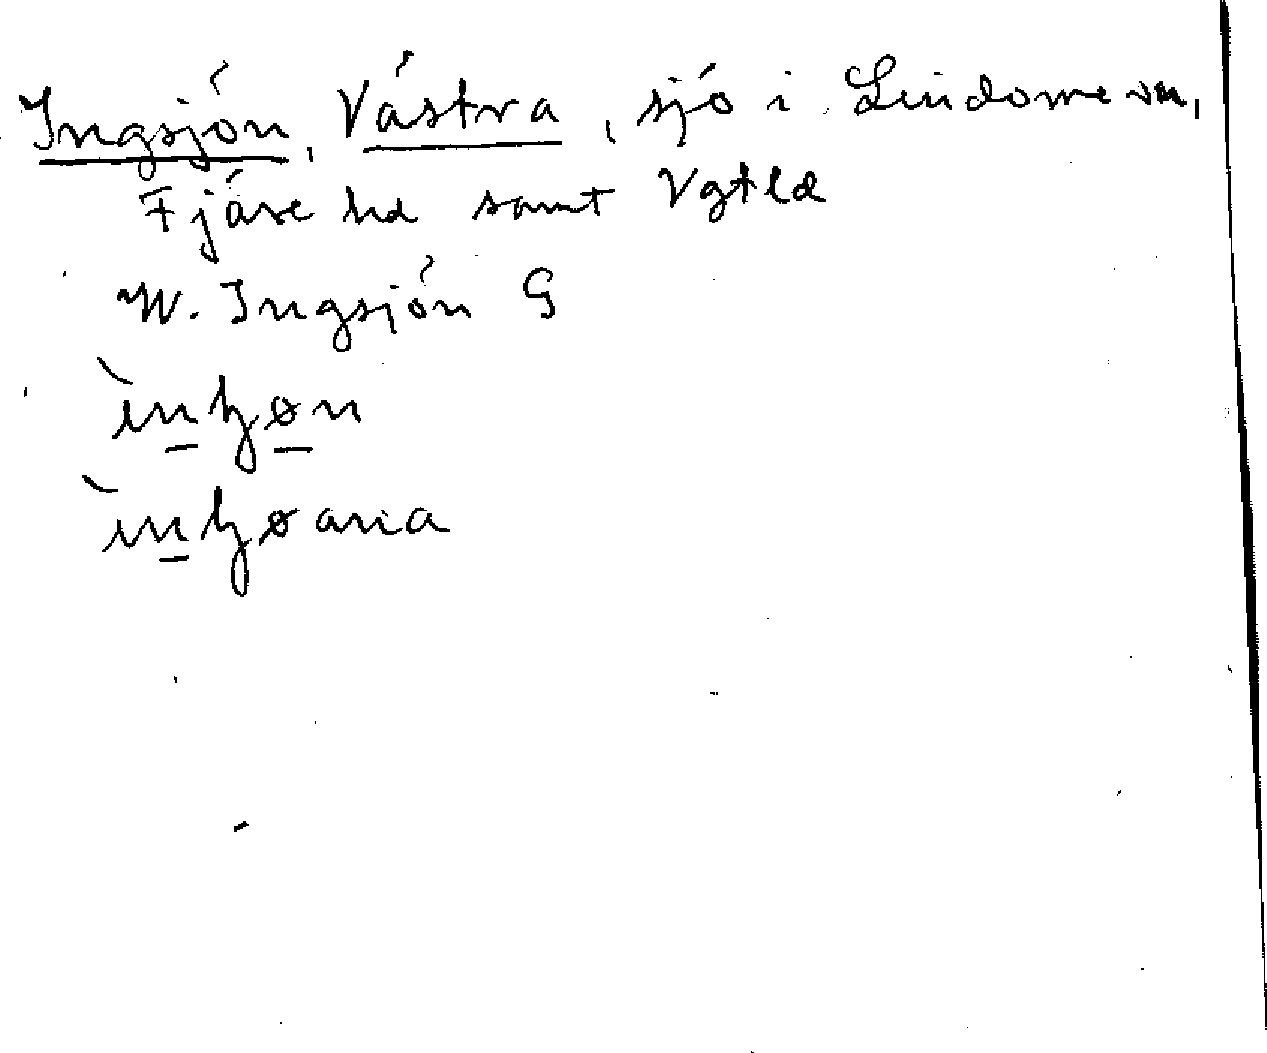 Ingsjön, Västra, sjö i Lindome sn,
Fjäre hd samt Vgtld
W. Ingsjön G